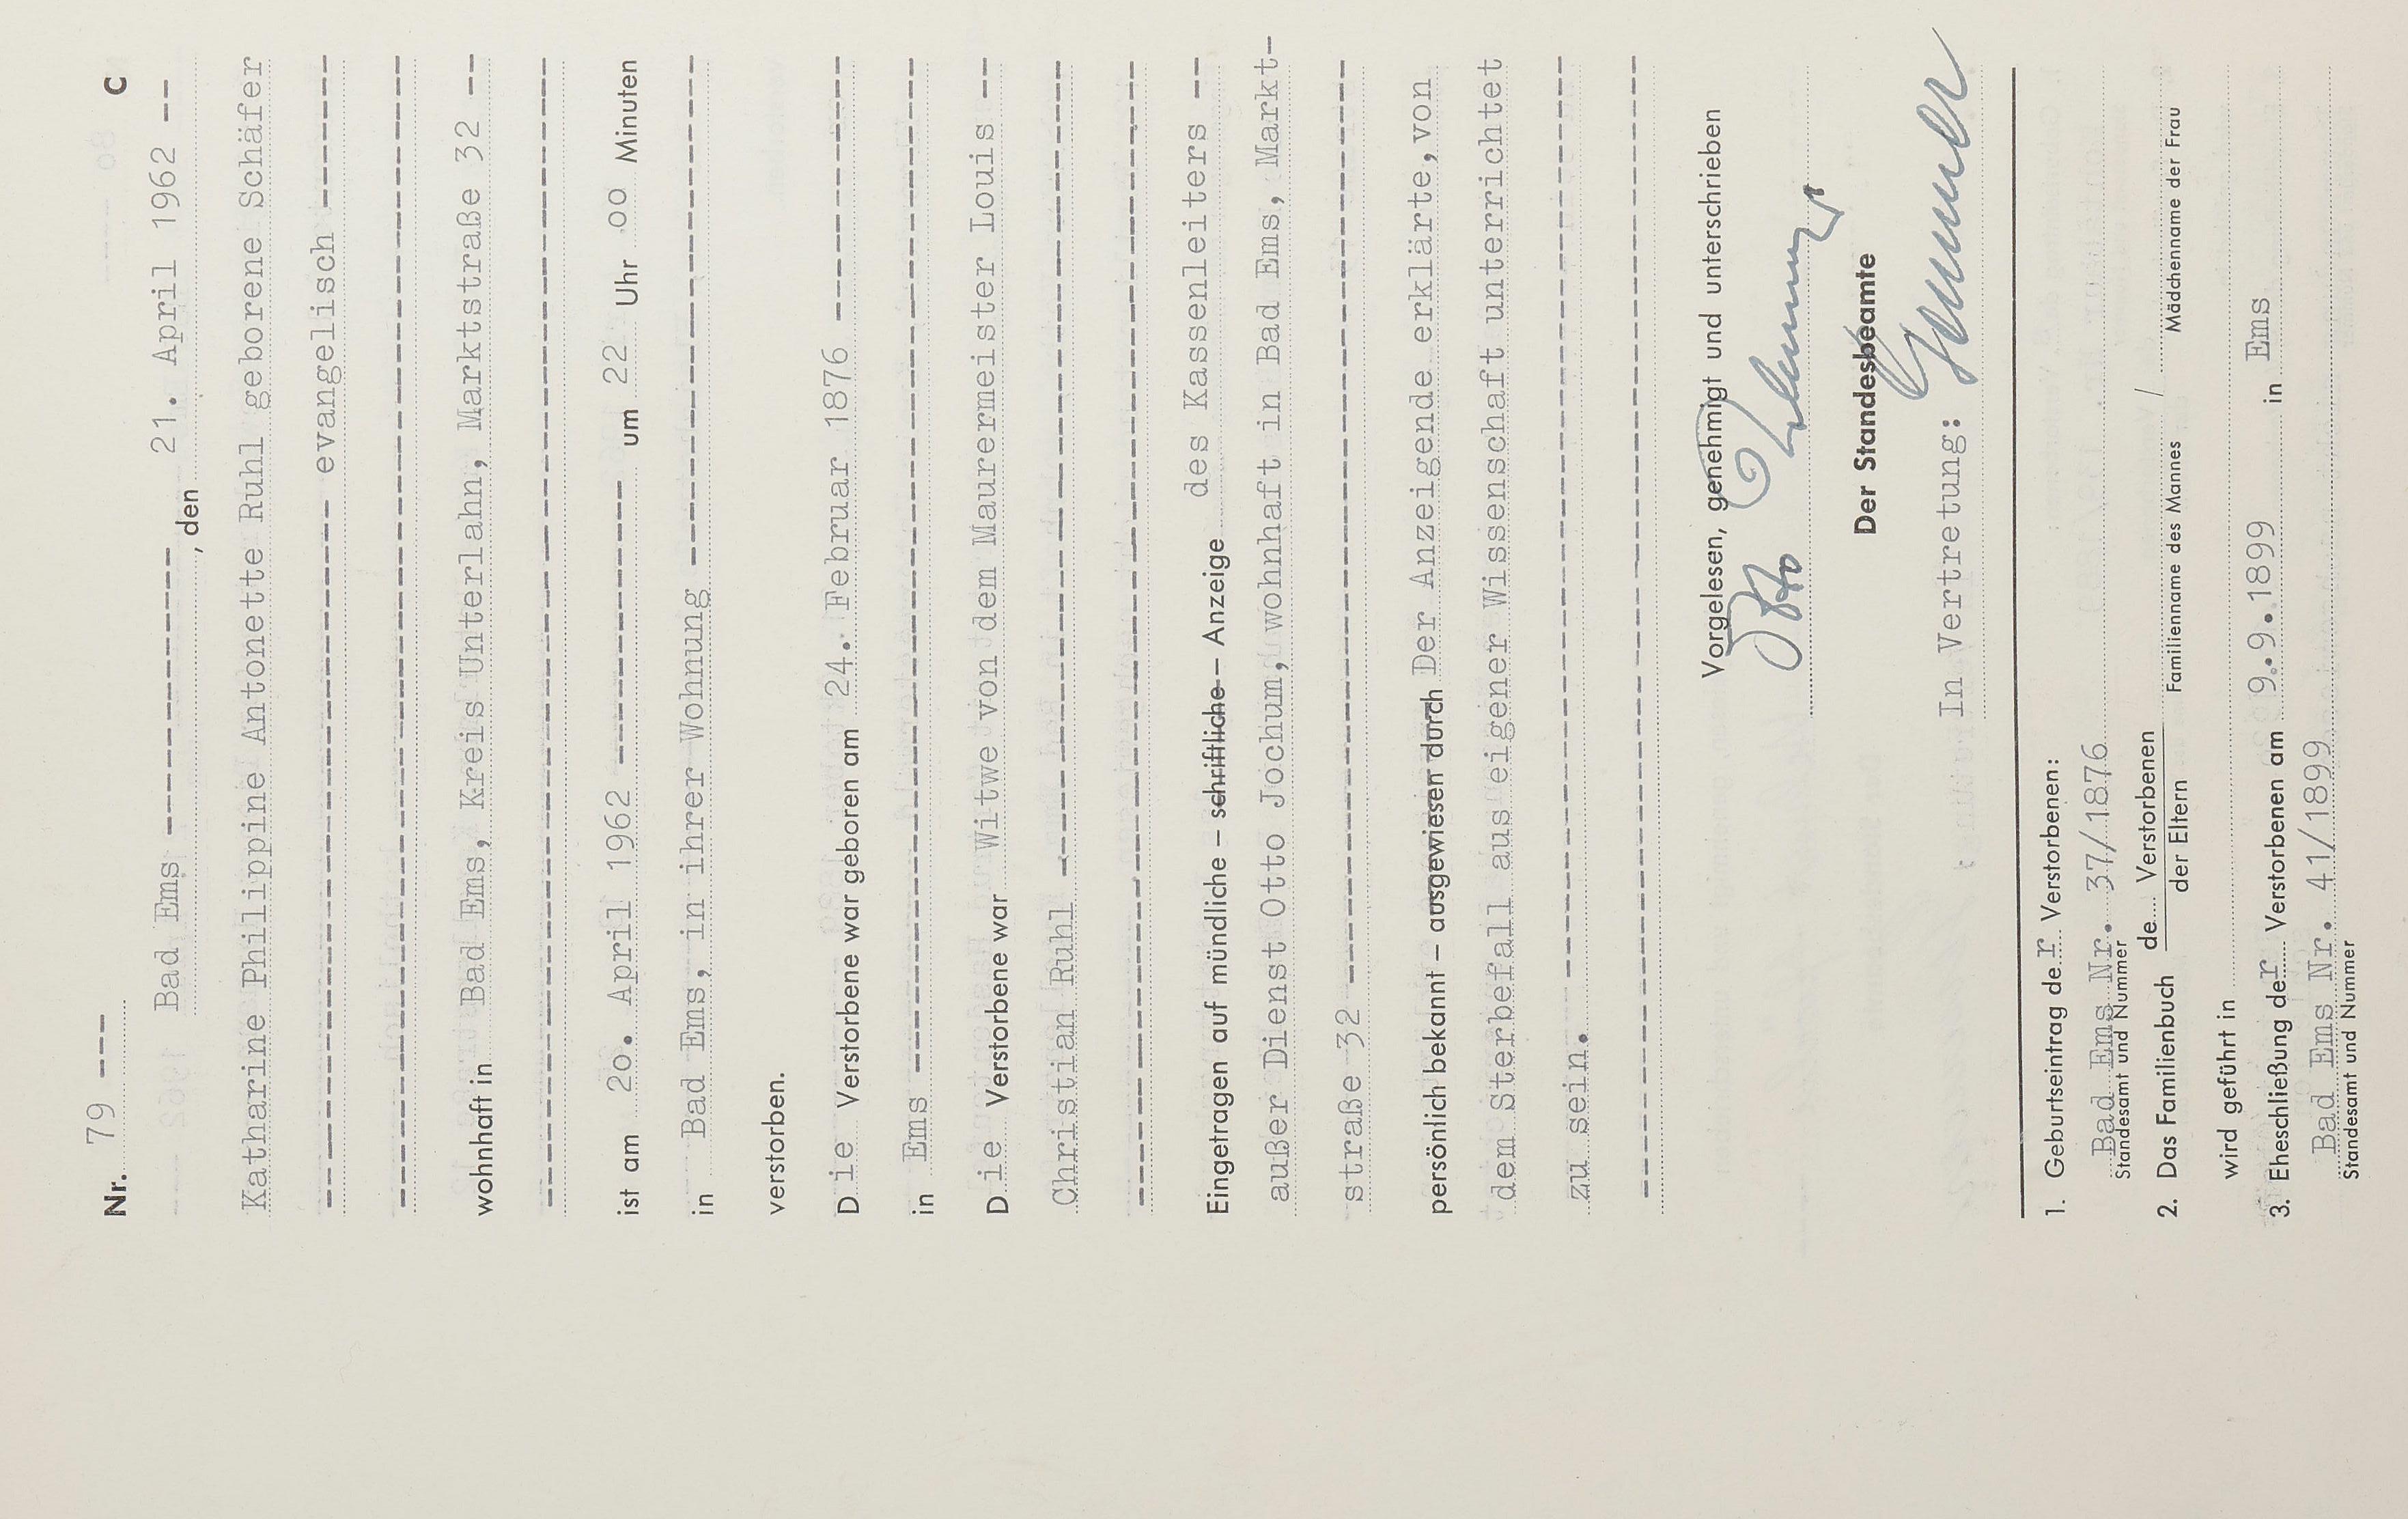 Nr. 79 --- C
Bad Ems ------------- , den 21. April 1962 --
Katharine Philippine Antonette Ruhl geborene Schäfer
--------------------------------- evangelisch -------
----------------------------------------------------
wohnhaft in Bad Ems, Kreis Unterlahn, Marktstraße 32 --
----------------------------------------------------
ist am 2o. April 1962 ------------- um 22 Uhr oo Minuten
in Bad Ems, in ihrer Wohnung -----------------------
verstorben.
Die Verstorbene war geboren am 24. Februar 1876 ------------
in Ems ---------------------------------------------
Die Verstorbene war Witwe von dem Maurermeister Louis --
Christian Ruhl -------------------------------------
----------------------------------------------------
Eingetragen auf mündliche – schriftliche – Anzeige des Kassenleiters --
außer Dienst Otto Jochum, wohnhaft in Bad Ems, Markt-
straße 32 ------------------------------------------
persönlich bekannt – ausgewiesen durch Der Anzeigende erklärte,von
dem Sterbefall aus eigener Wissenschaft unterrichtet
zu sein. -------------------------------------------
----------------------------------------------------
Vorgelesen, genehmigt und unterschrieben
Otto Jochum
Der Standesbeamte
In Vertretung:
1. Geburtseintrag der Verstorbenen:
Bad Ems Nr. 37/1876
Standesamt und Nummer
2. Das Familienbuch de Verstorbenen / der Eltern /
Familienname des Mannes Mädchenname der Frau
wird geführt in
3. Eheschließung der Verstorbenen am 9.9.1899 in Ems
Bad Ems Nr. 41/1899
Standesamt und Nummer